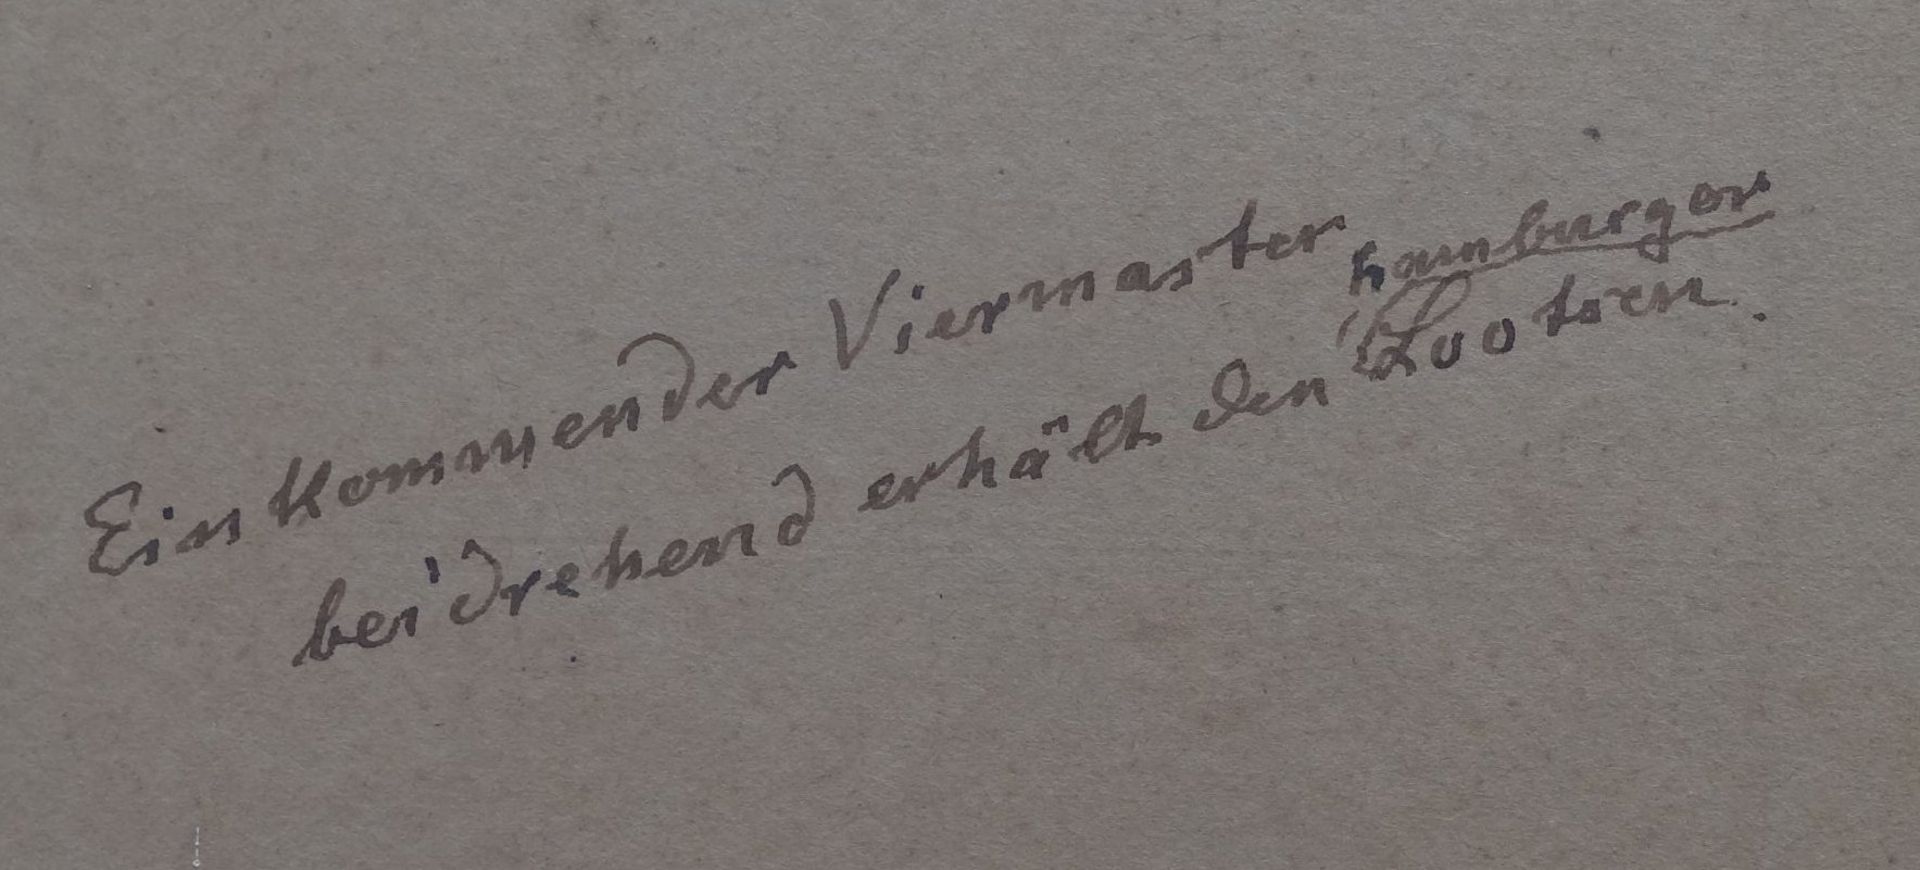 Ein kommender Viermaster
hamburger
beidrehend erhält den Lootsen.